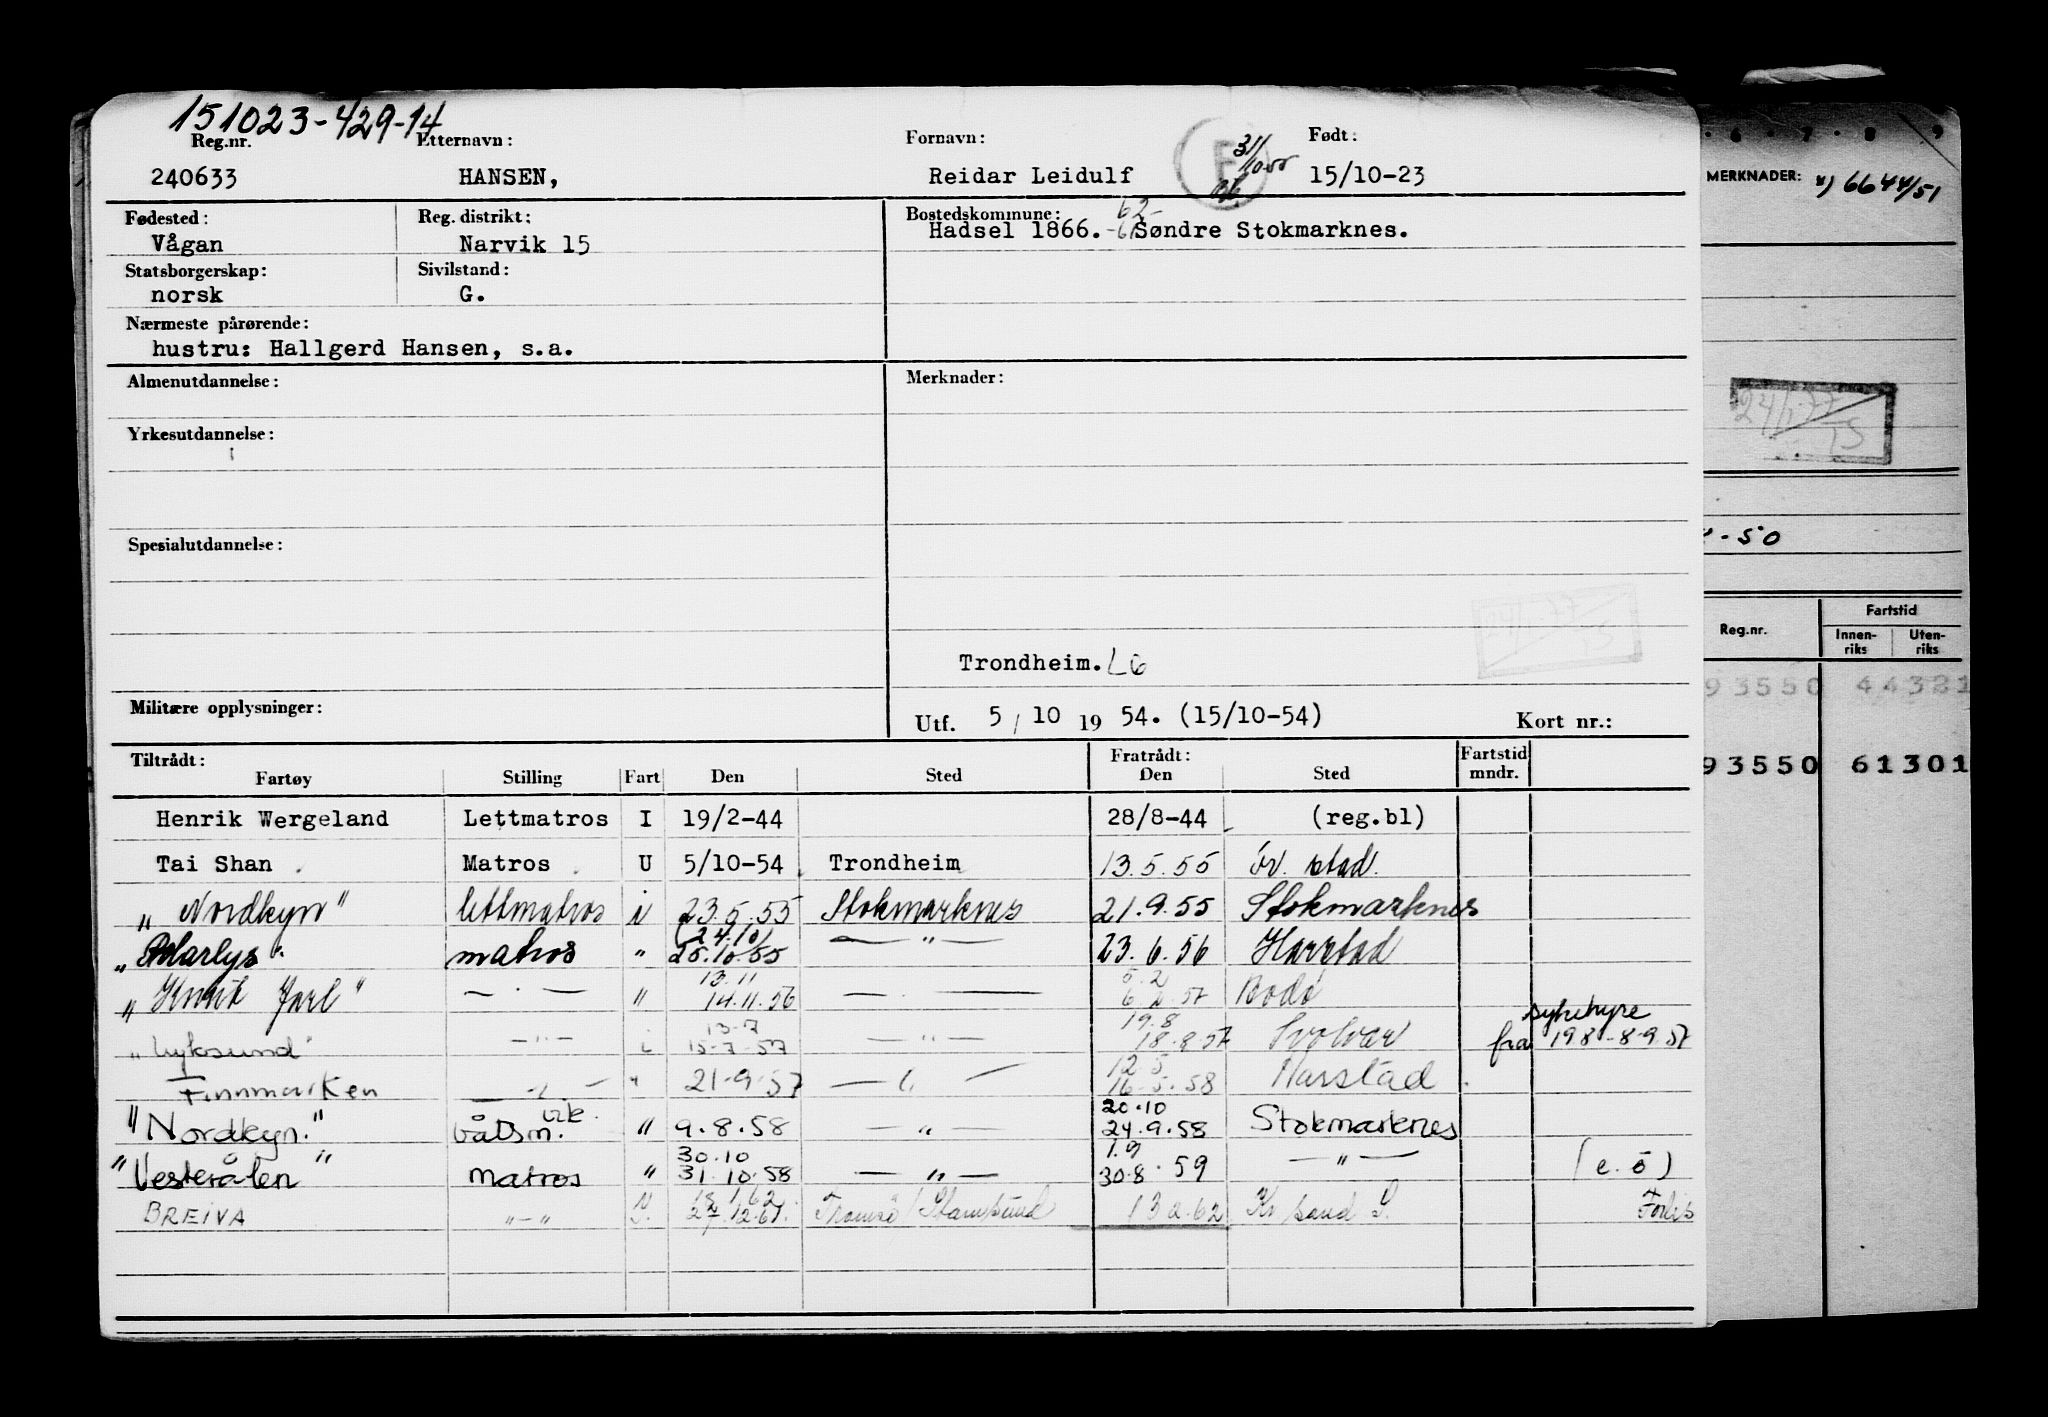 151023-429-14
Reg.nr. Etternavn: Fornavn: Født:
240633 HANSEN, Reidar Leidulf F 31/10-55 15/10-23
Fødested: Reg. distrikt: Bostedskommune: 62-
Vågan Narvik 15 Hadsel 1866. Søndre Stokmarknes.
Statsborgerskap: Sivilstand:
norsk G.
Nærmeste pårørende:
hustru: Hallgerd Hansen, s.a.
Almenutdannelse: Merknader:
Yrkesutdannelse:
Spesialutdannelse:
Trondheim. LG
Militære opplysninger: Utf. 5/10 1954. (15/10-54) Kort nr.:
Tiltrådt: Fratrådt: Fartstid
Fartøy Stilling Fart Den Sted Den Sted mndr.
Henrik Wergeland Lettmatros I 19/2-44 28/8-44 (reg.bl)
Tai Shan Matros U 5/10-54 Trondheim 13.5.55
"Nordkyn" lettmatros i 23.5.55 Stokmarknes 21.9.55 Stokmarknes
(24.10)
"Polarlys" matros " 25.10.55 — " — 23.6.56 Harstad
13.11 5.2
"Knut Jarl" — " — " 14.11.56 — " — 6.2.57 Bodø
13-7 19.8 sykehyre
"Lyksund" — " — i 15-7-57 — " — 18.8.57 Svolvær fra 19.8-8.9.57
12.5
Finnmarken — " — " 21-9-57 — " — 16-5-58 Harstad
vik. 20.10
"Nordkyn." båtsm. " 9.8.58 — " — 24.9.58 Stokmarknes
30.10 1.9
"Vesterålen" matros " 31.10.58 — " — 30.8.59 — " — (e.ö)
BREIVA "—" 12.61. Tromsö/Stamsund 13 2.62 Kr sand S. Forlis
6 7 8 9
MERKNADER: x) 6644/51
24/1-77
15
-50
Reg.nr. Fartstid
Innen-riks Uten-riks
93550 44321
93550 61301